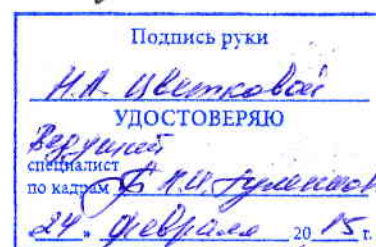 Подпись руки
Н.А. Цветковой
УДОСТОВЕРЯЮ
Ведущий
специалист
по кадрам
24 " февраля 20 15 г.